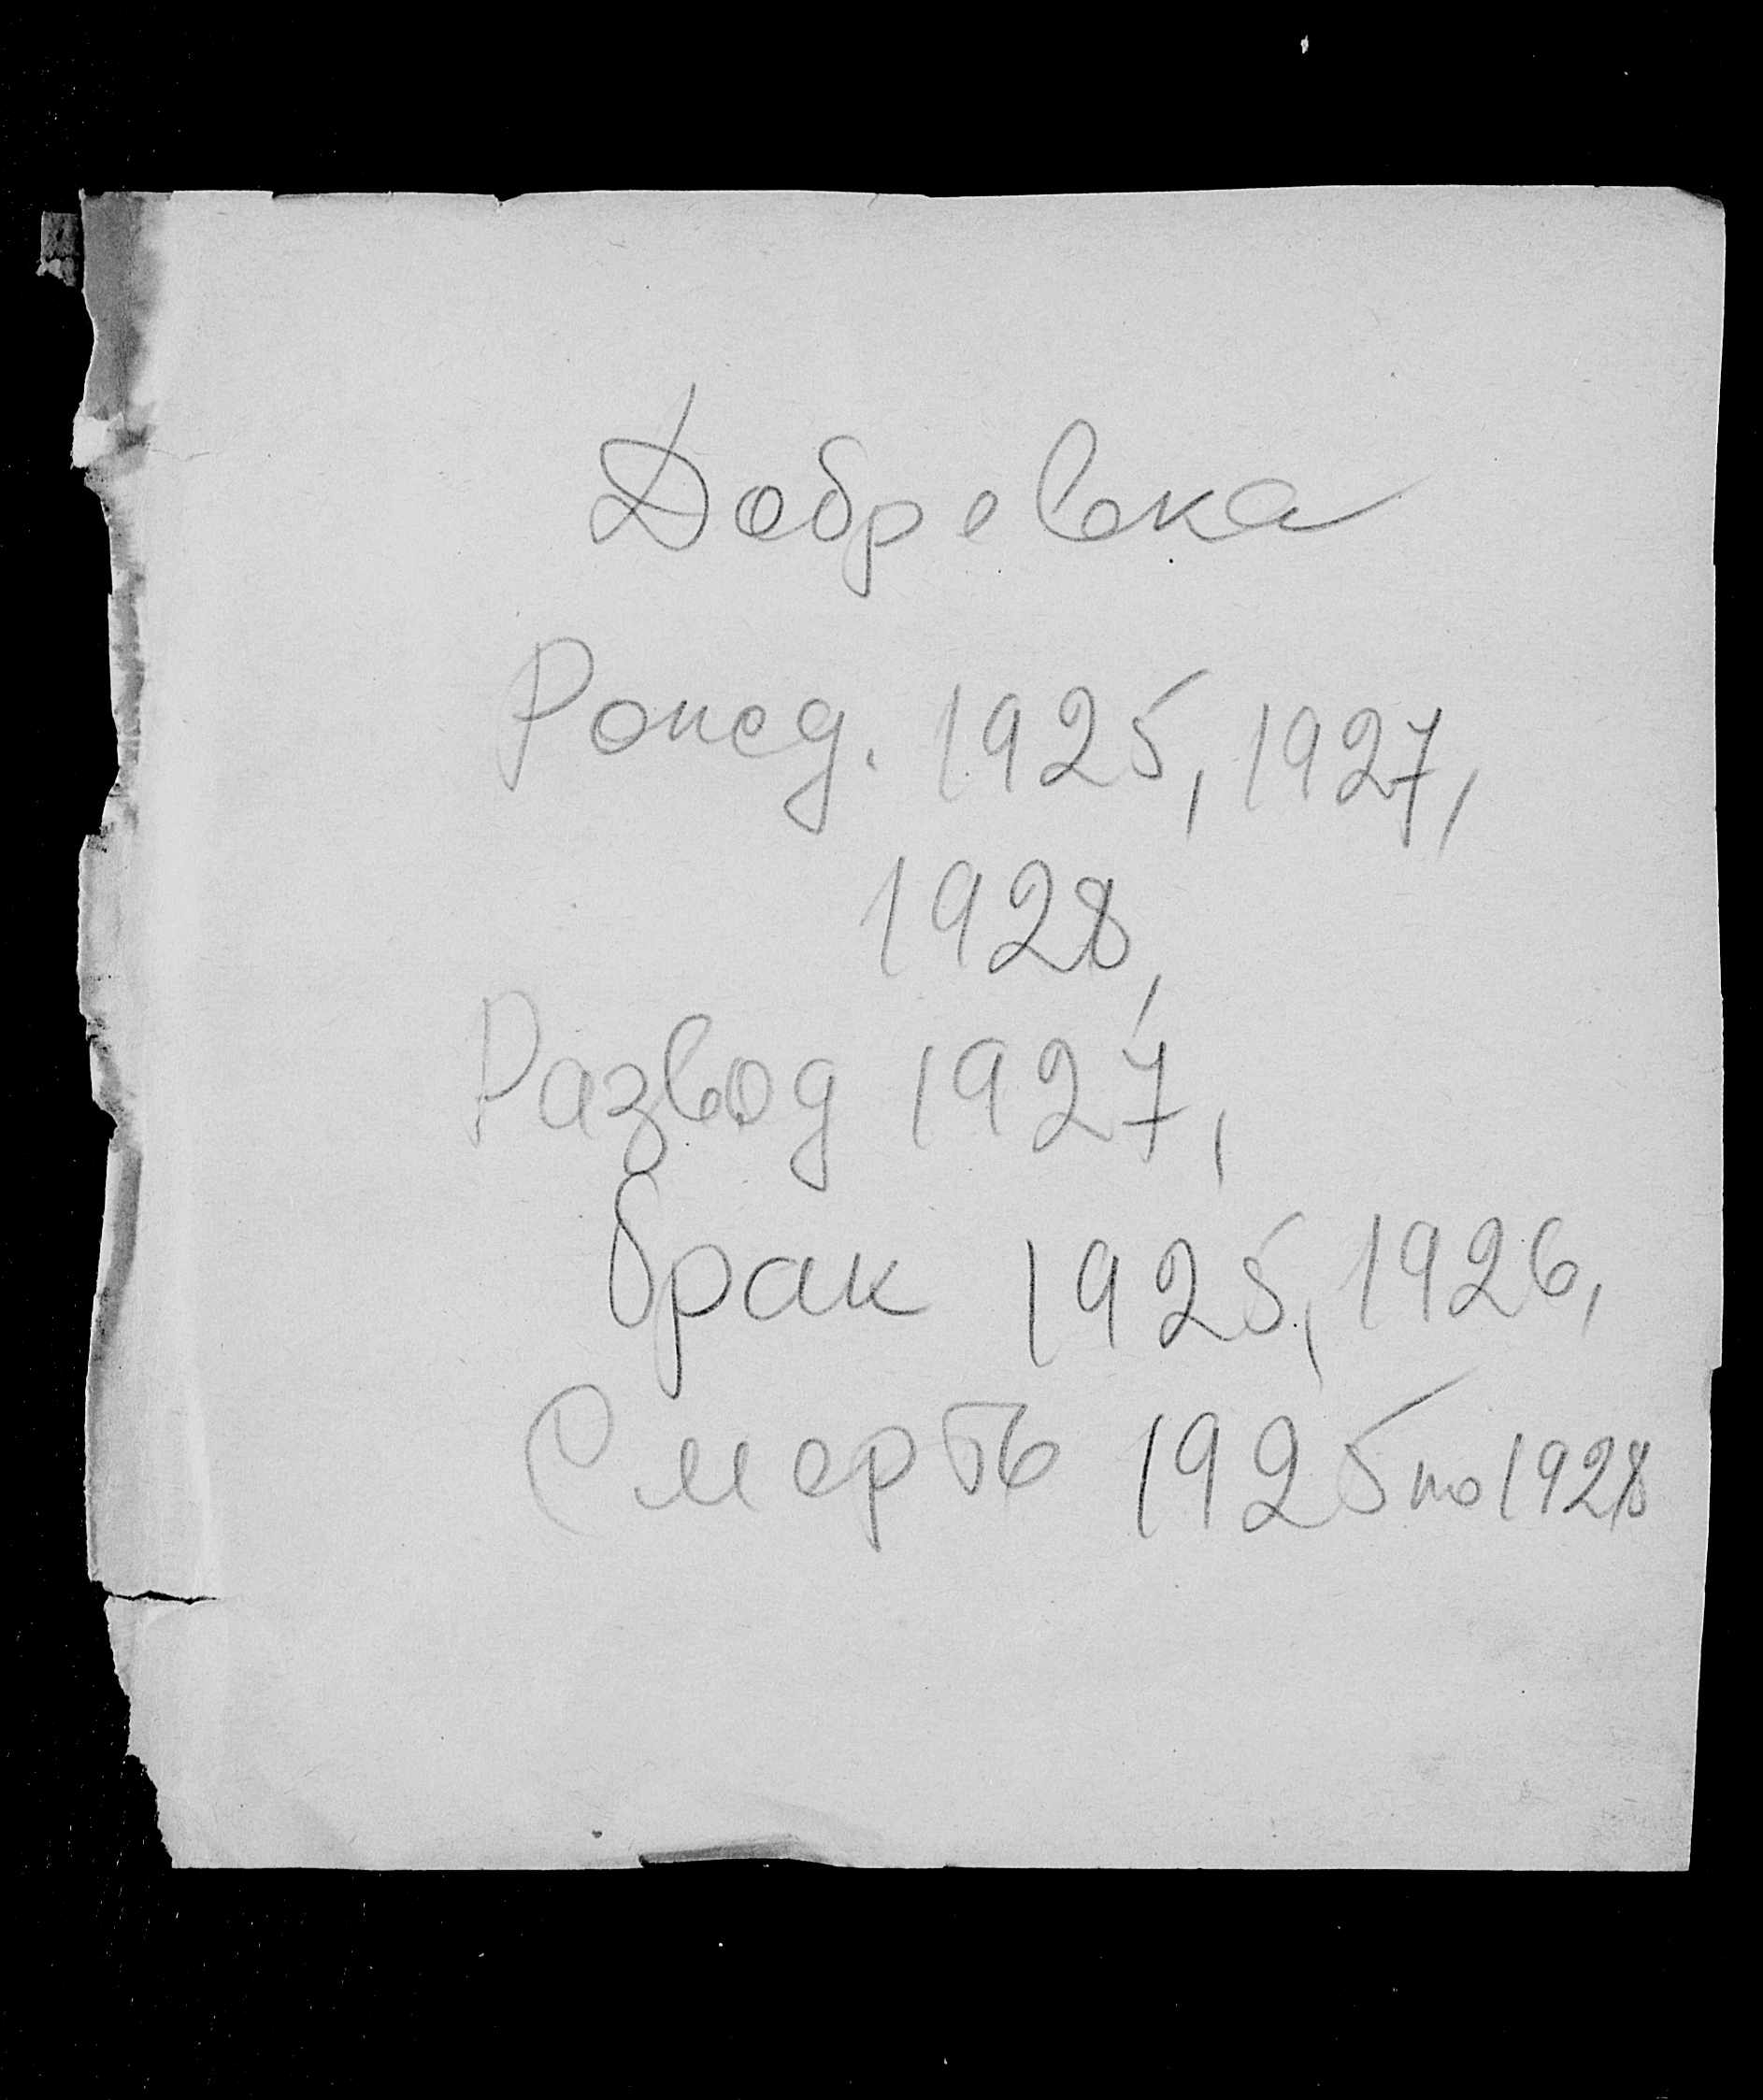 Добревка
Рожд. 1925, 1927,
1928,
Развод 1927,
брак 1925, 1926,
Смерть 1925 по 1928